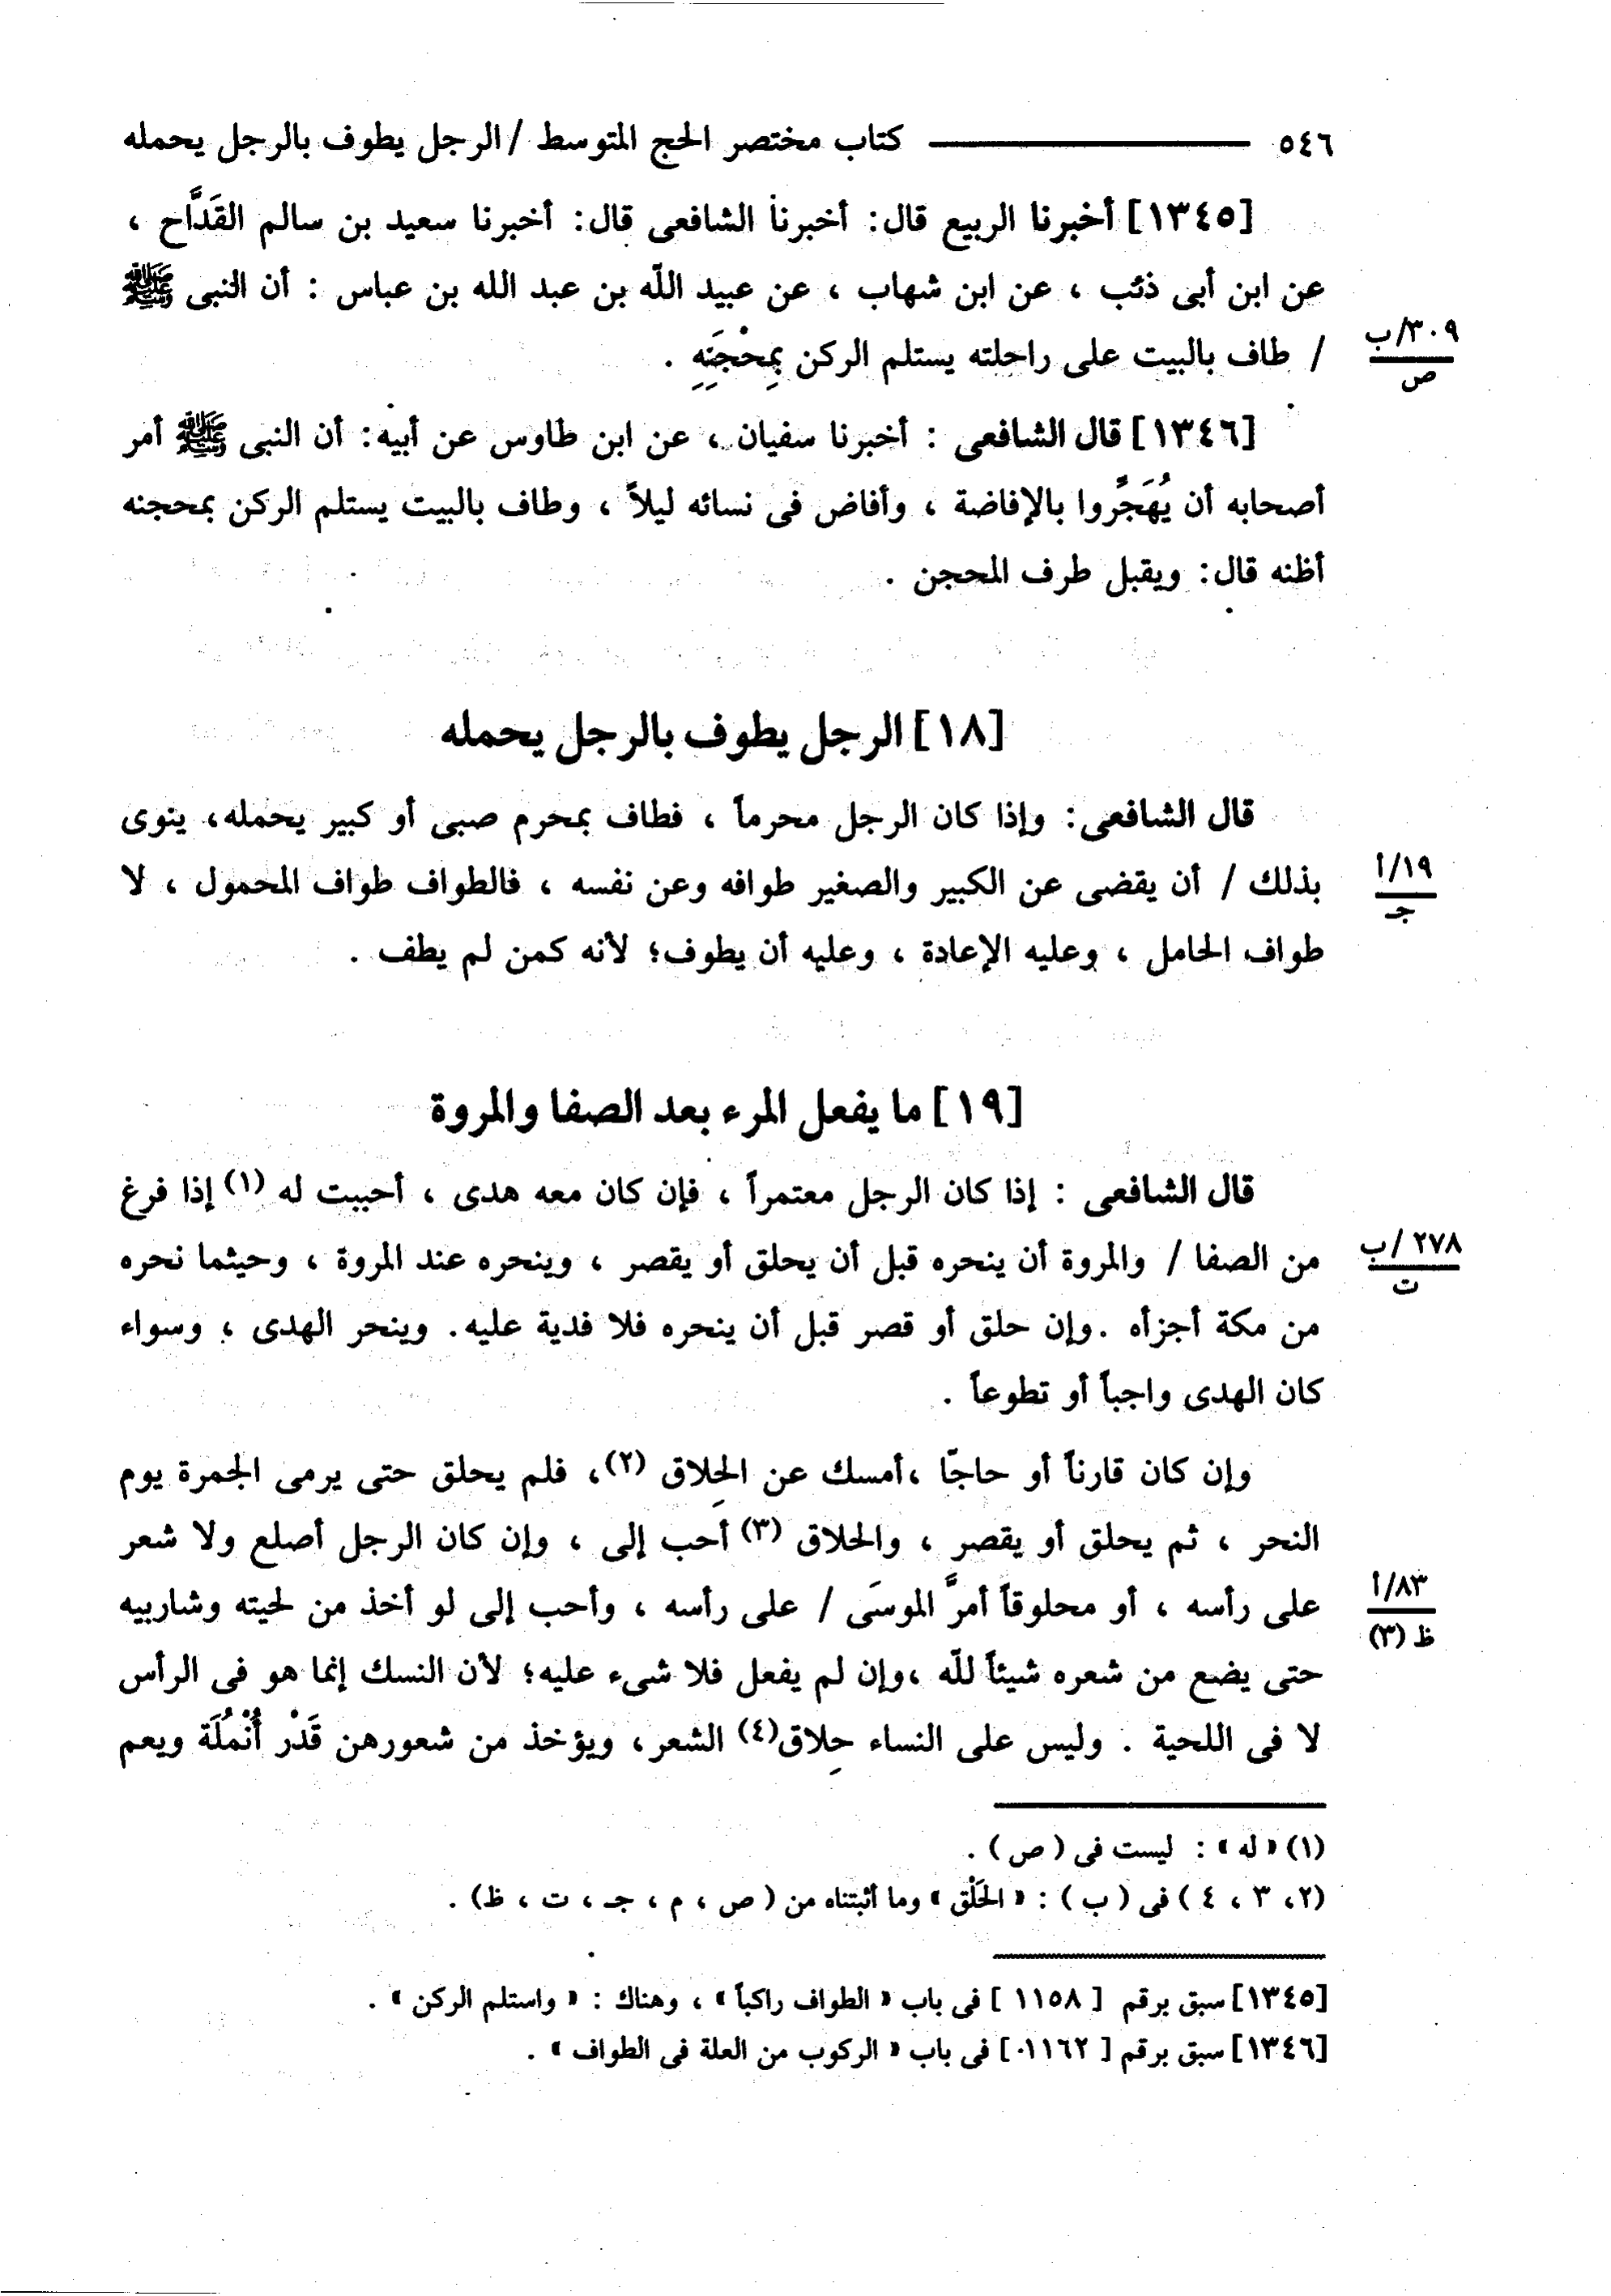 ٥٤٦ ــــــــــــــــ كتاب مختصر الحج المتوسط / الرجل يطوف بالرجل يحمله
[١٣٤٥] أخبرنا الربيع قال: أخبرنا الشافعى قال: أخبرنا سعيد بن سالم القَدَّاح ،
عن ابن أبى ذئب ، عن ابن شهاب ، عن عبيد اللّه بن عبد الله بن عباس : أن النبى ﷺ
/ طاف بالبيت على راحلته يستلم الركن بِمِحْجَنِهِ .
٣٠٩/ب
ص
[١٣٤٦] قال الشافعى : أخبرنا سفيان ، عن ابن طاوس عن أبيه: أن النبى ﷺ أمر
أصحابه أن يُهَجِّروا بالإفاضة ، وأفاض فى نسائه ليلاً ، وطاف بالبيت يستلم الركن بمحجنه
أظنه قال: ويقبل طرف المحجن .
[١٨] الرجل يطوف بالرجل يحمله
قال الشافعى: وإذا كان الرجل محرماً ، فطاف بمحرم صبى أو كبير يحمله، ينوى
بذلك / أن يقضى عن الكبير والصغير طوافه وعن نفسه ، فالطواف طواف المحمول ، لا
١٩/أ
جـ
طواف الحامل ، وعليه الإعادة ، وعليه أن يطوف؛ لأنه كمن لم يطف .
[١٩] ما يفعل المرء بعد الصفا والمروة
قال الشافعى : إذا كان الرجل معتمراً ، فإن كان معه هدى ، أحببت له (١) إذا فرغ
من الصفا / والمروة أن ينحره قبل أن يحلق أو يقصر ، وينحره عند المروة ، وحيثما نحره
٢٧٨/ب
ت
من مكة أجزأه . وإن حلق أو قصر قبل أن ينحره فلا فدية عليه. وينحر الهدى ، وسواء
كان الهدى واجباً أو تطوعاً .
وإن كان قارناً أو حاجّا ،أمسك عن الحِلاق (٢)، فلم يحلق حتى يرمى الجمرة يوم
النحر ، ثم يحلق أو يقصر ، والحلاق (٣) أحب إلى ، وإن كان الرجل أصلع ولا شعر
على رأسه ، أو محلوقاً أمرَّ الموسَى / على رأسه ، وأحب إلى لو أخذ من لحيته وشاربيه
٨٣/أ
ظ (٣)
حتى يضع من شعره شيئاً للّه ،وإن لم يفعل فلا شىء عليه؛ لأن النسك إنما هو فى الرأس
لا فى اللحية . وليس على النساء حِلاق(٤) الشعر، ويؤخذ من شعورهن قَدْر أُنْمُلَة ويعم
(١) « له » : ليست فى ( ص ) .
(٢، ٣ ، ٤ ) فى ( ب ) : « الحَلْق » وما أثبتناه من ( ص ، م ، جـ ، ت ، ظ) .
[١٣٤٥] سبق برقم [ ١١٥٨ ] فى باب « الطواف راكباً » ، وهناك : « واستلم الركن » .
[١٣٤٦] سبق برقم [ ١١٦٢] فى باب « الركوب من العلة فى الطواف » .